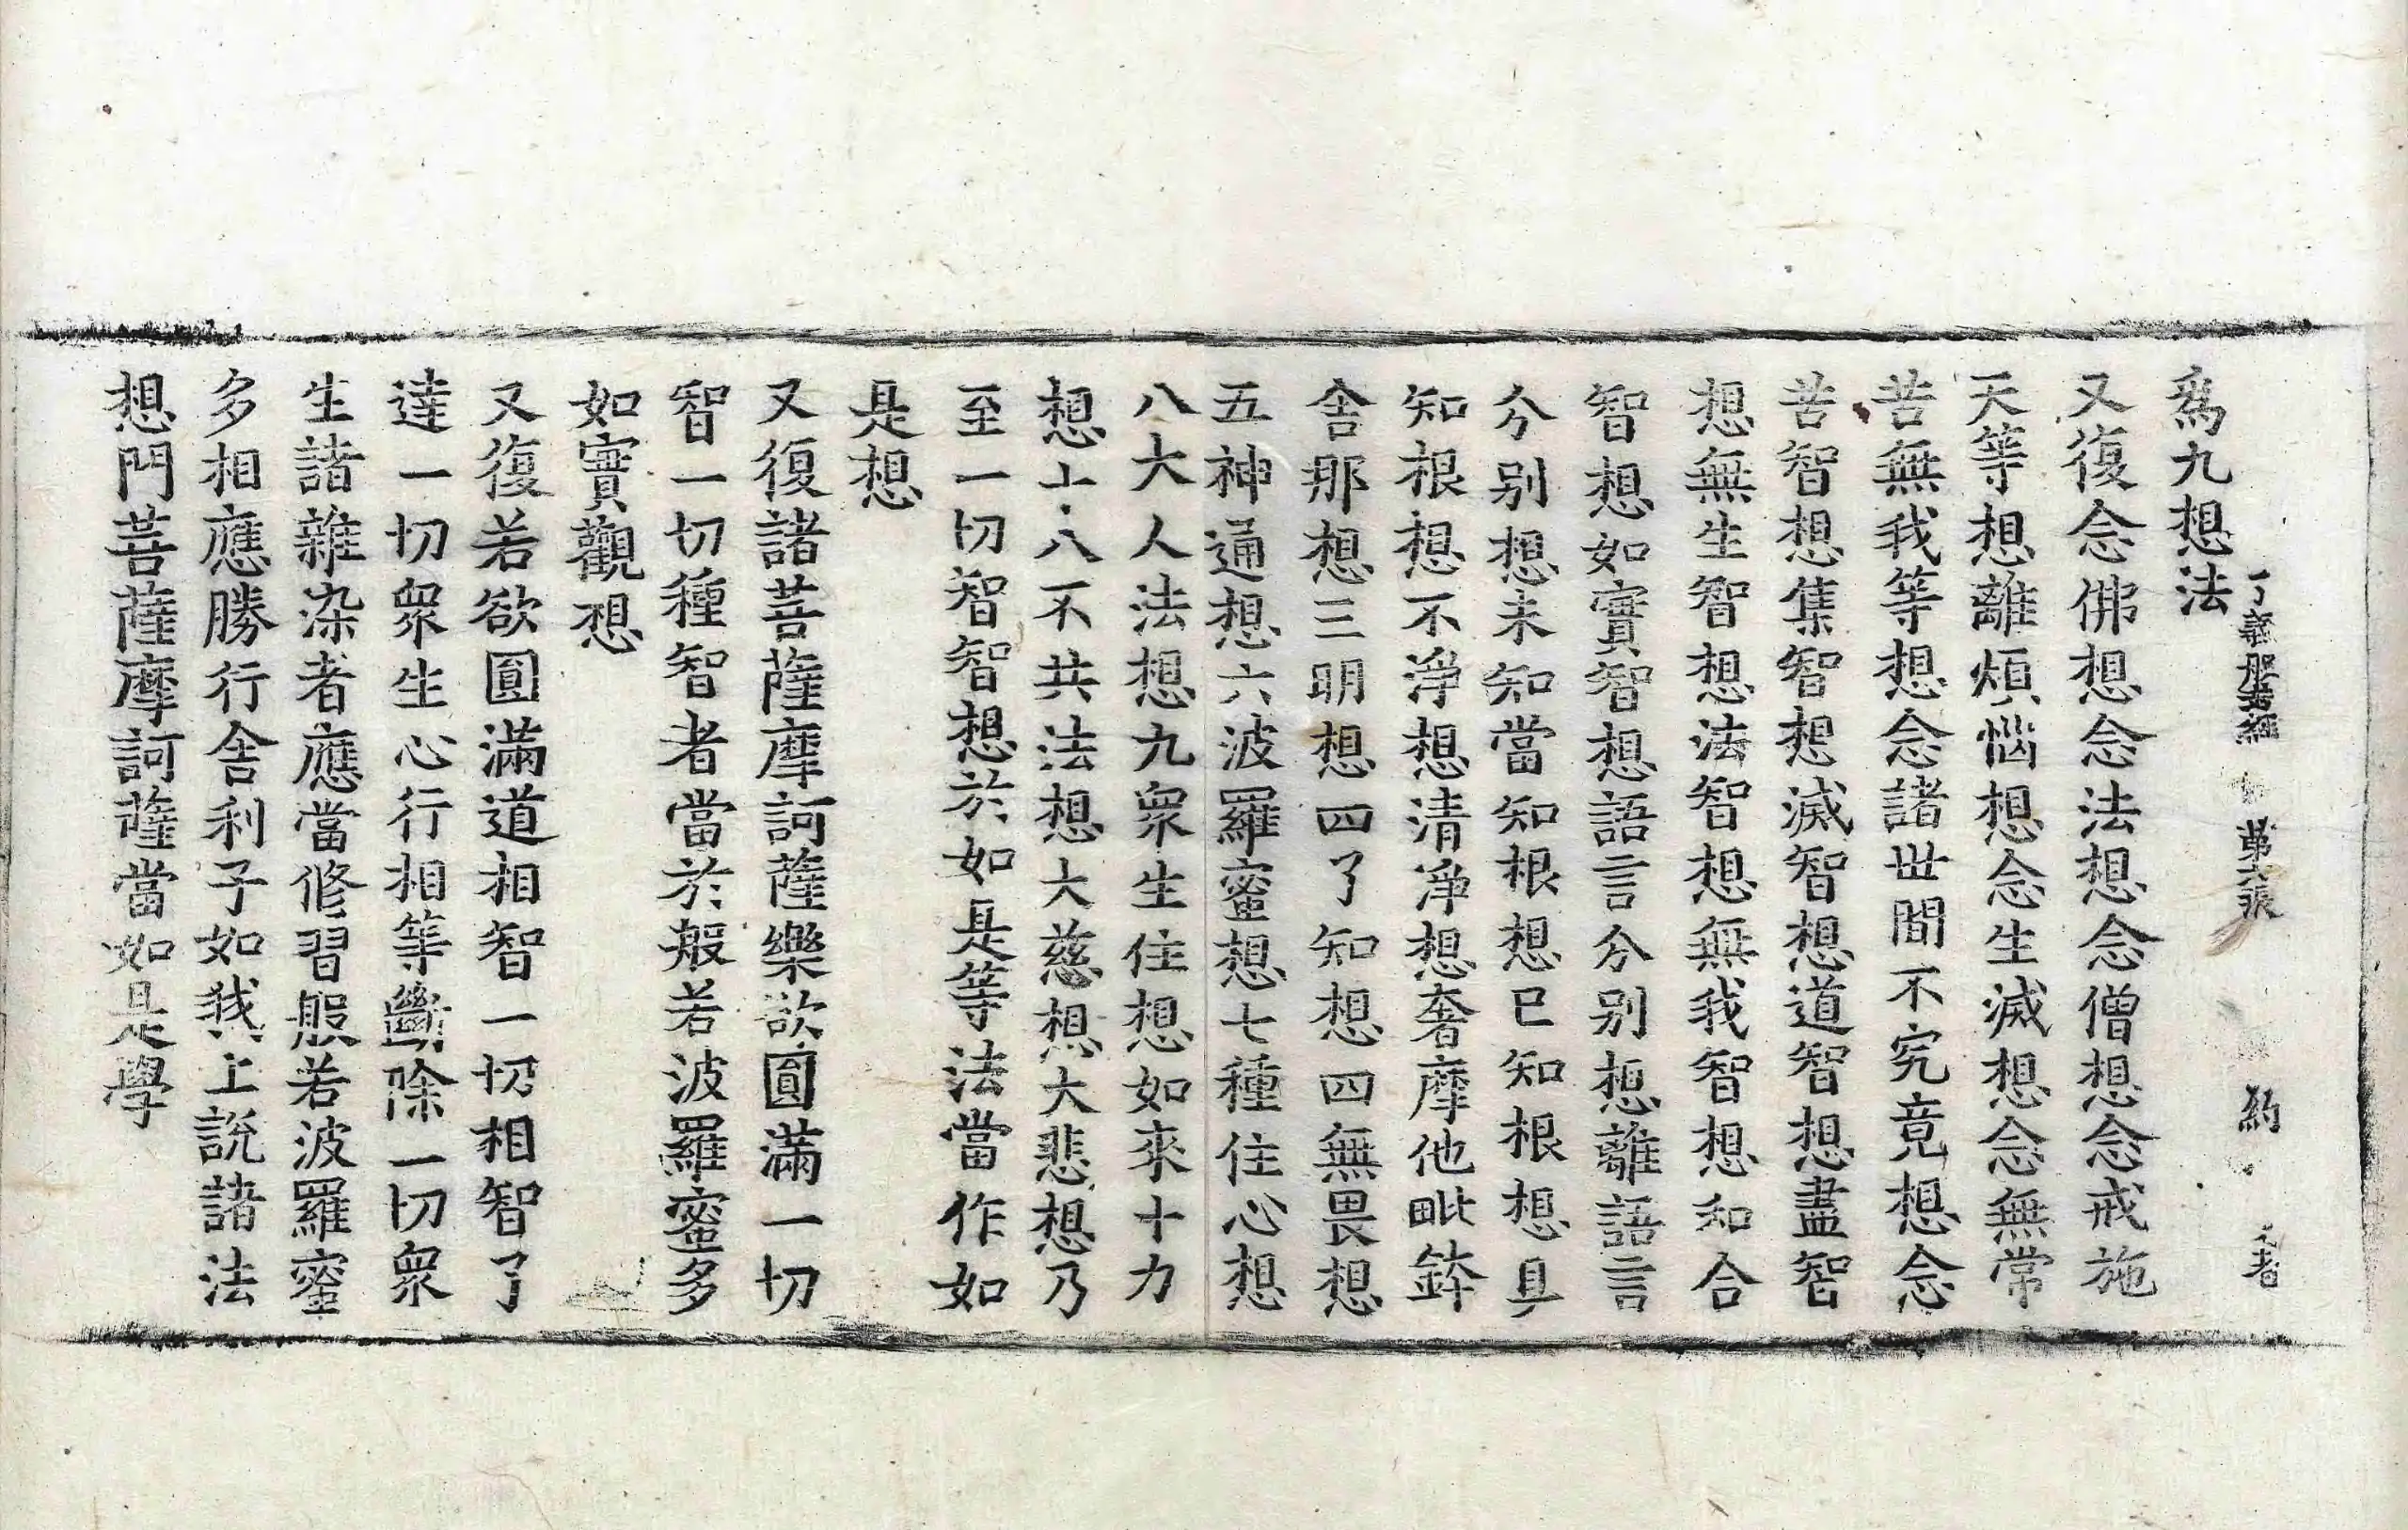 了義般若經 第六張 約
爲九想法
又復念佛想念法想念僧想念戒施
天等想離煩惱想念生滅想念無常
苦無我等想念諸世間不究竟想念
苦智想集智想滅智想道智想盡智
想無生智想法智想無我智想和合
智想如實智想語言分別想離語言
分別想未知當知根想已知根想具
知根想不淨想清淨想奢摩他毗鉢
舍那想三明想四了知想四無畏想
五神通想六波羅蜜想七種住心想
八大人法想九衆生住想如來十力
想十八不共法想大慈想大悲想乃
至一切智智想於如是等法當作如
是想
又復諸菩薩摩訶薩樂欲圓滿一切
智一切種智者當於般若波羅蜜多
如實觀想
又復若欲圓滿道相智一切相智了
達一切衆生心行相等斷除一切衆
生諸雜染者應當修習般若波羅蜜
多相應勝行舍利子如我上說諸法
想門菩薩摩訶薩當如是學